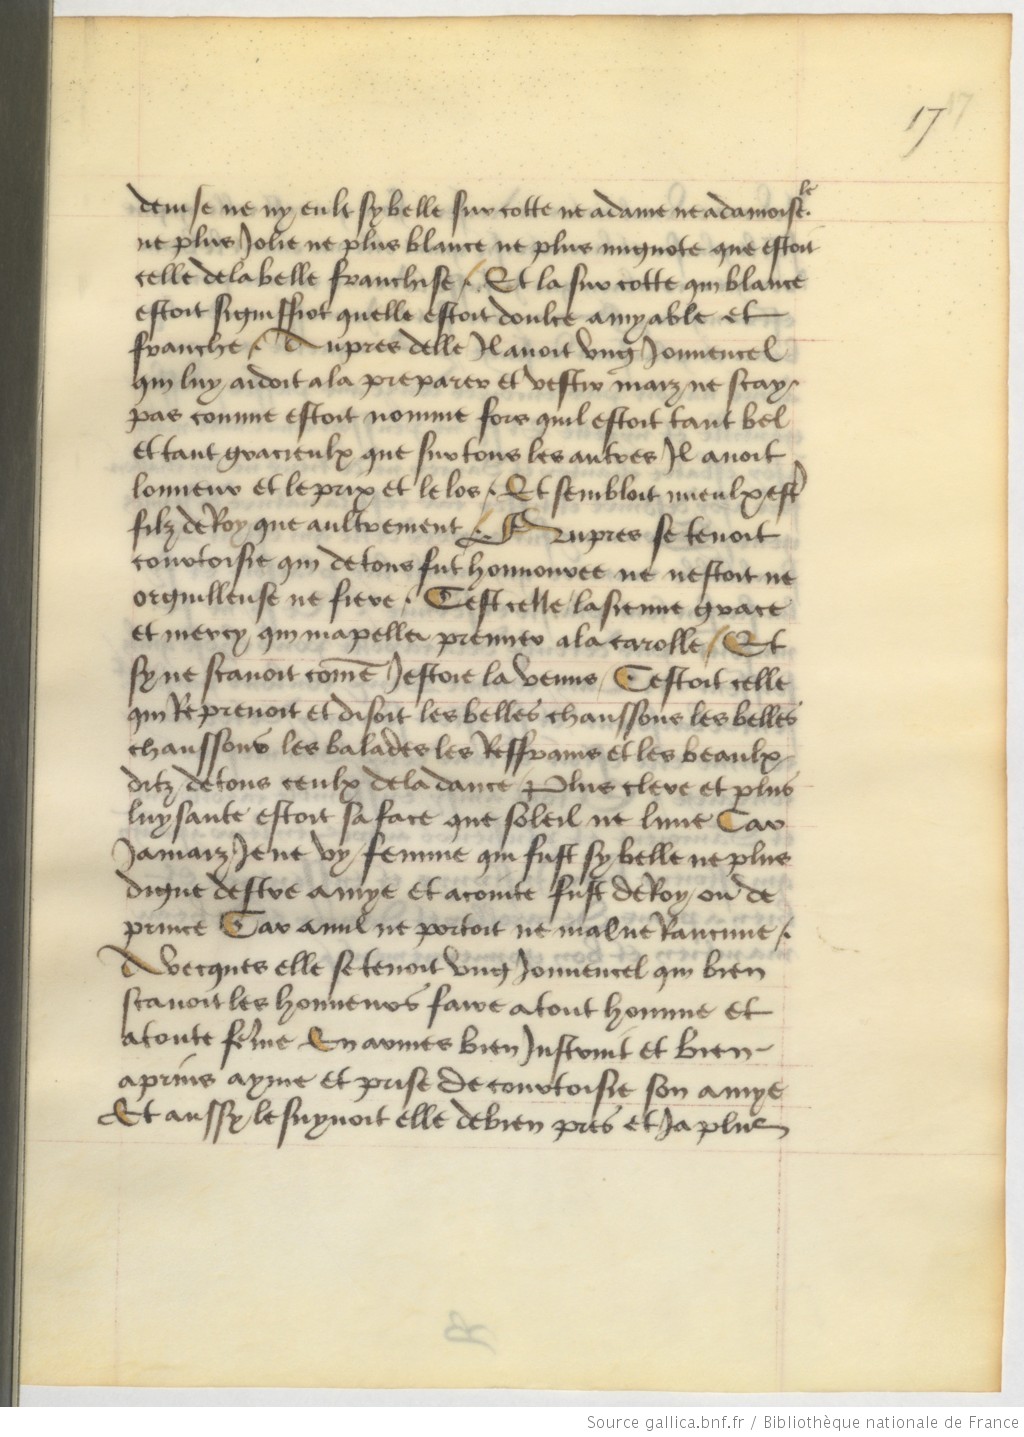 17
devise ne ny eult sy belle surcotte ne a dame ne a damoisele
ne plus Jolie ne plus blance ne plus mignote que estoit
celle de la belle franchise / Et la surcotte qui blance
estoit signiffiot quelle estoit doulce amyable et
franche / Aupres delle Il avoit ung Jouvencel
qui luy aidoit a la preparer et vestir maiz ne scay
pas comme estoit nomme fors quil estoit tant bel
et tant gracieulx que sur tous les autres Il avoit
lonneur et le prix et le los / Et sembloit mieulx estr
filz de Roy que aultrement / Aupres se tenoit
courtoisie qui de tous fut honnouree ne nestoit ne
orguilleuse ne fiere / Cest celle la sienne grace
et mercy qui mapella premier a la carolle / Et
sy ne scavoit come Jestoie la venus / Cestoit celle
qui Reprenoit et disoit les belles chanssons les belles
chanssons les balades les Reffrains et les beaulx
ditz de tous ceulx de la dance / Plus clere et plus
luysante estoit sa face que soleil ne lune Car
Jamaiz Je ne vy femme qui fust sy belle ne plus
digne destre amye et acointe fust de Roy ou de
prince Car a nul ne portoit ne mal ne Rancune /
Avecques elle se tenoit ung Jouvencel qui bien
scavoit les honneurs faire a tout homme et
a toute feme En armes bien Instruit et bien
aprins ayme et prise de courtoisie son amye
Et aussy le suyvoit elle de bien pres et Ja plus
Source gallica.bnf.fr / Bibliothèque nationale de France